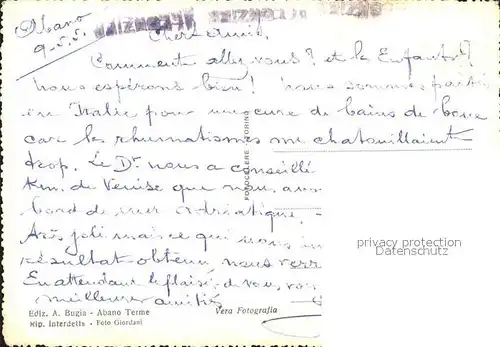 Abano
9-5.5.
Chers amis,
Comment allez vous? et les Enfants?
nous espérons bien! nous sommes partis
en Italie pour une cure de bains de boue
car les rhumatismes me chatouillaient
trop. Le Dr nous a conseillé
Km. de Venise que nous
bord de mer adriatique,
très joli mais ce qui nous
résultat obtenu, nous
En attendant le plaisir de vous
meilleures amitiés
FOTOCELERE TORINO
privacy protection
Datenschutz
Ediz. A. Bugia - Abano Terme
Rip. Interdetta - Foto Giordani
Vera Fotografia